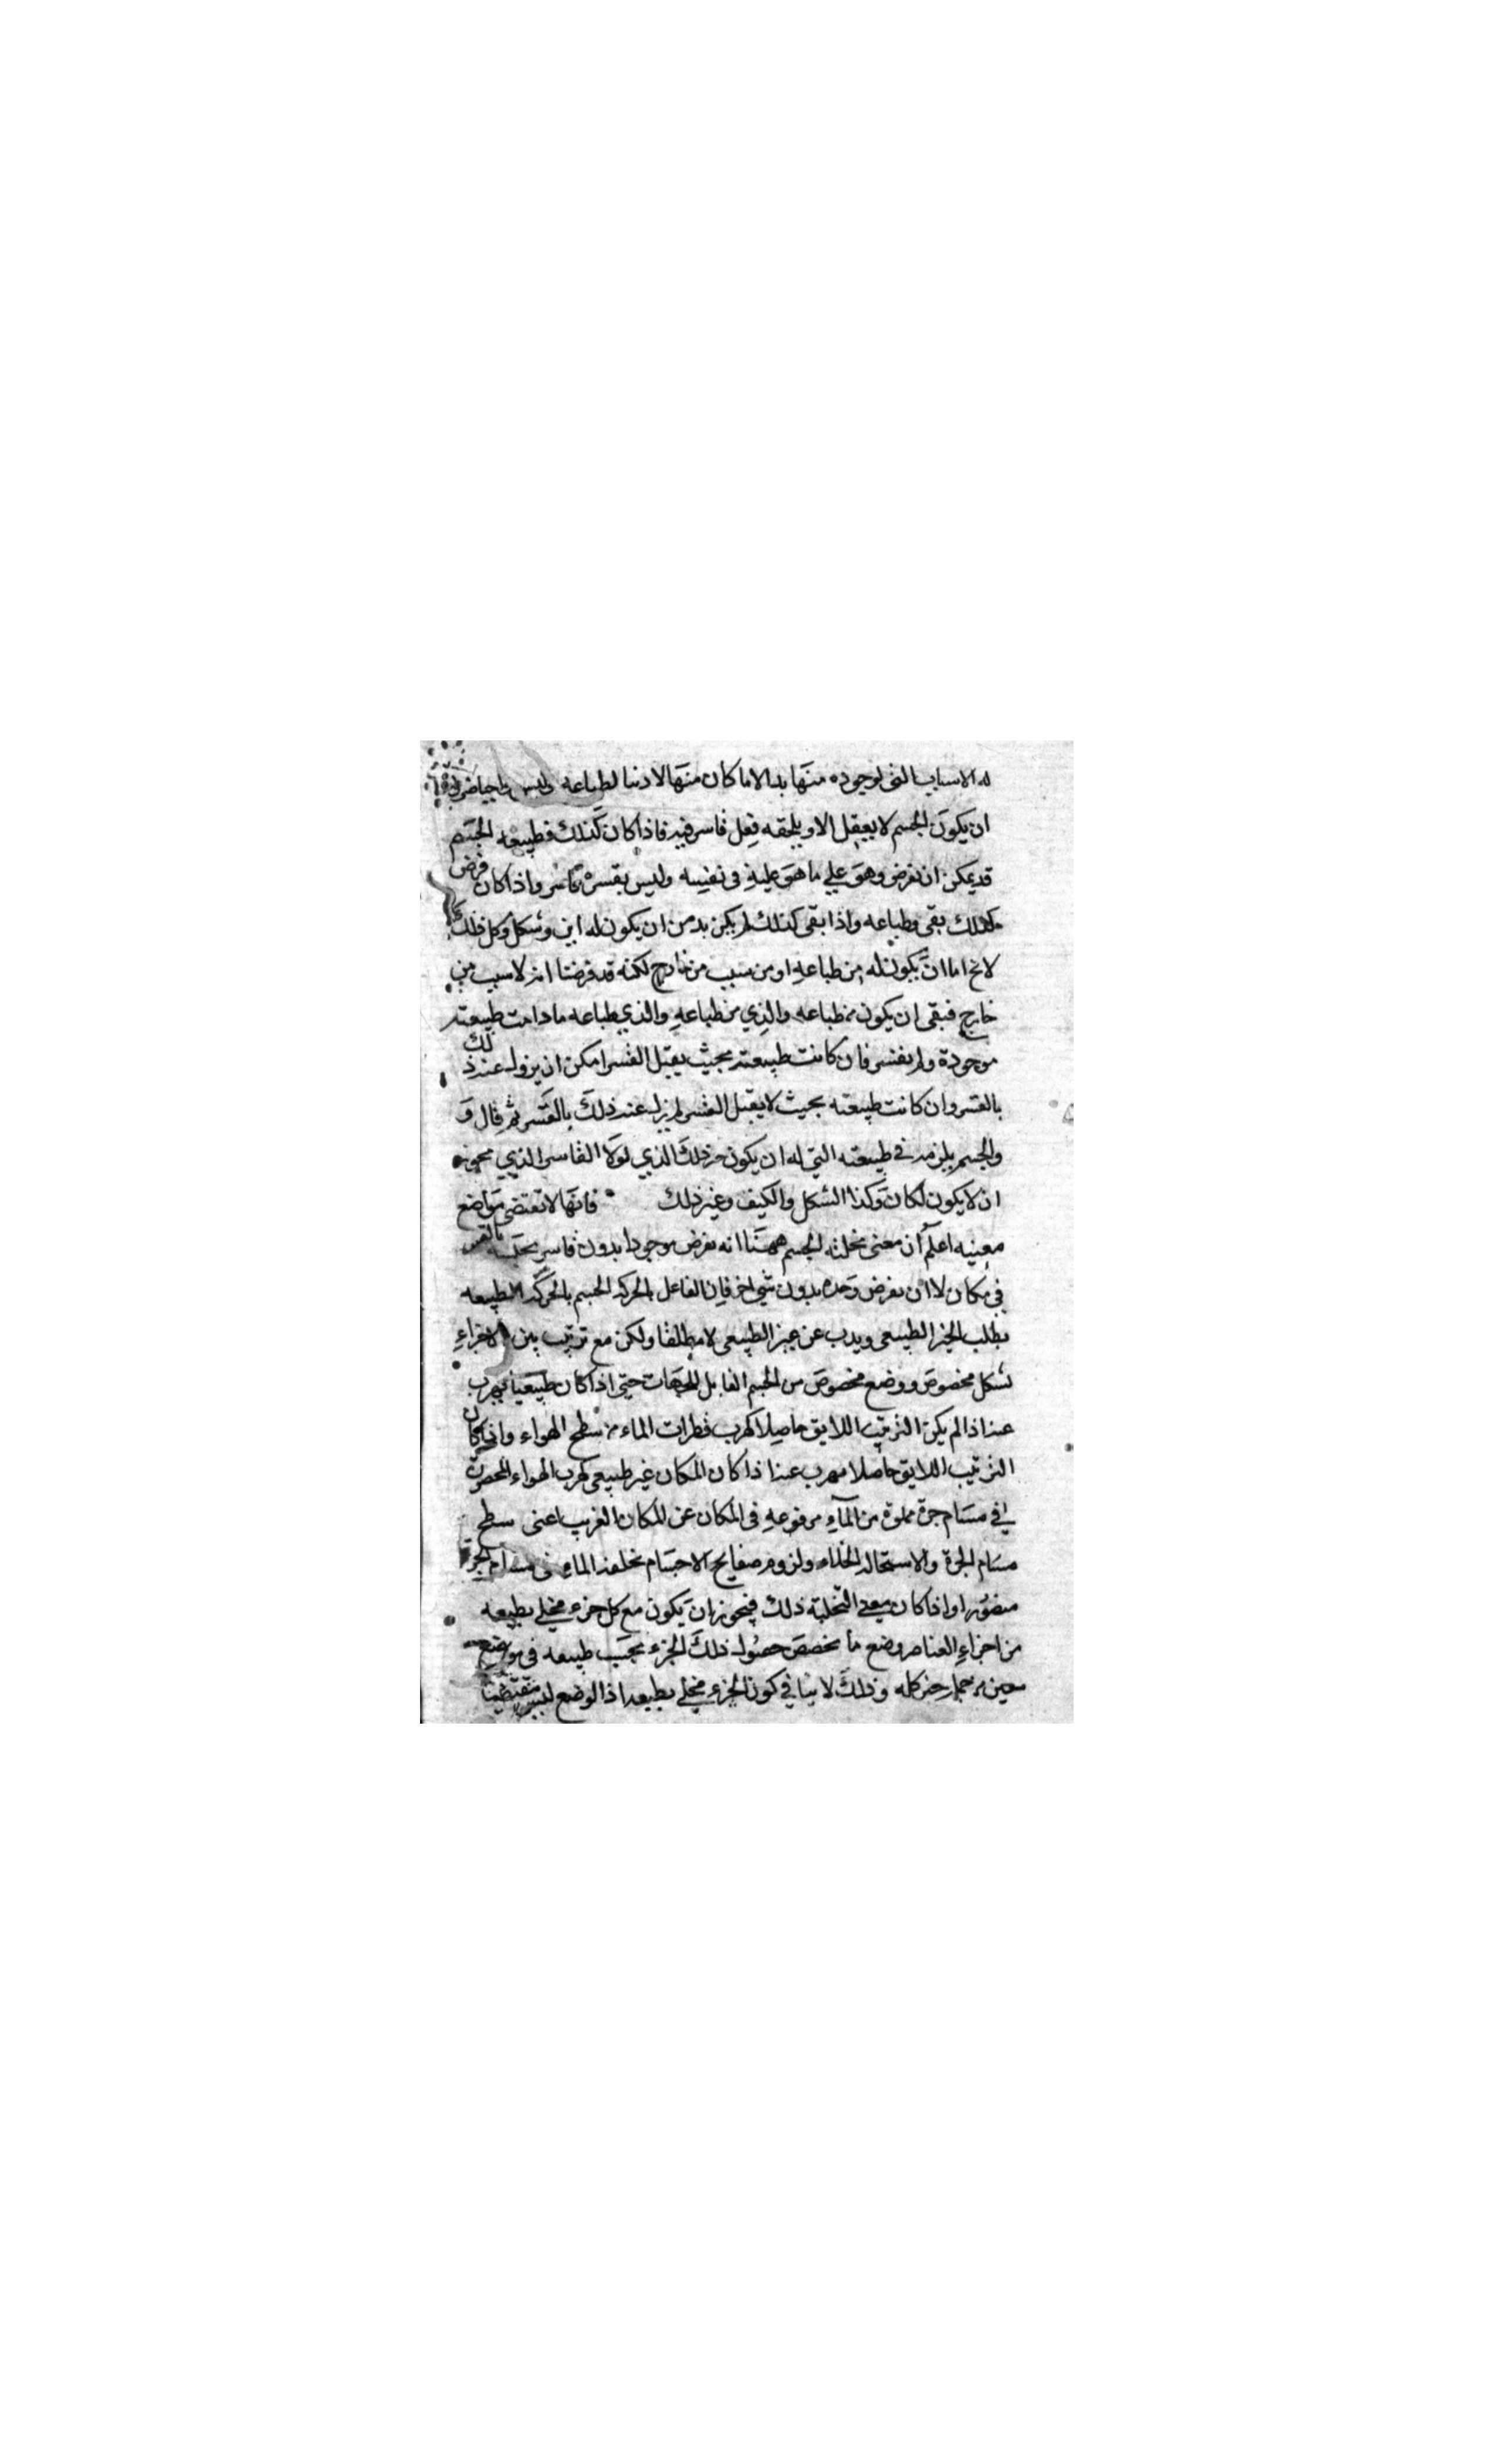 له الاسباب التى لوجوده منها بد الا ما كان منها لازما لطباعه وليس واجبا ضرورة
ان يكون الجسم لا يعقل الا ويلحقه فعل قاسر فيه فاذا كان كذلك فطبيعة الجسم
قد يمكن ان تفرض وهو على ما هو عليه فى نفسه وليس يقسره قاسر واذا كان فرض
كذلك بقى وطباعه واذا بقى كذلك لم يكن بد من ان يكون له اين وشكل وكل ذلك
لا يخ اما ان يكون له من طباعه او من سبب من خارج لكنه قد فرضنا انه لا سبب من
خارج فبقى ان يكون من طباعه والذي من طباعه والذي طباعه ما دامت طبيعته
موجودة ولم يقسر فان كانت طبيعته بحيث يقبل القسر امكن ان يزول عنه ذلك
بالقسر وان كانت طبيعته بحيث لا يقبل القسر لم يزل عنه ذلك بالقسر ثم قال و
والجسم يلزمه في طبيعته التي له ان يكون حيز ذلك الذي لولا القاسر الذي يجوز
ان لا يكون لكان وكذا الشكل والكيف وغير ذلك فانها لا تقتضى مواضع
معينه اعلم ان معنى تخلية الجسم ههنا انه يفرض موجودا بدون قاسر يحبسه بالقسر
في مكان لا ان يفرض وحده بدون شي اخر فان الفاعل بالحركة الجسم بالحركة الطبيعه
يطلب الحيز الطبيعى ويهرب عن غير الطبيعى لا مطلقا ولكن مع ترتيب بين الاجزاء
بشكل مخصوص ووضع مخصوص من الجسم القابل للجهات حتى اذا كان طبيعيا يهرب
عنه اذا لم يكن الترتيب اللايق حاصلا كهرب قطرات الماء من سطح الهواء وان كان
الترتيب اللايق حاصلا يهرب عنه اذا كان المكان غير طبيعى كهرب الهواء المحصور
في مسام جرة مملوة من الماء مرفوعه فى المكان عن المكان الغريب اعنى سطح
مسام الجرة والاستحالة الخلاء ولزوم صفايح الاجسام تخلفه الماء فى مسام الجرة
متصورا واذا كان معنى التخلية ذلك فيجوز ان يكون مع كل جزء مخلى بطبيعه
من اجزاء العناصر وضع ما يخصص حصول ذلك الجزء بحسب طبيعه فى موضع
معين من حيز كله وذلك لا ينافي كون الجزء مخلى بطبيعه اذ الوضع ليس مقتضيا